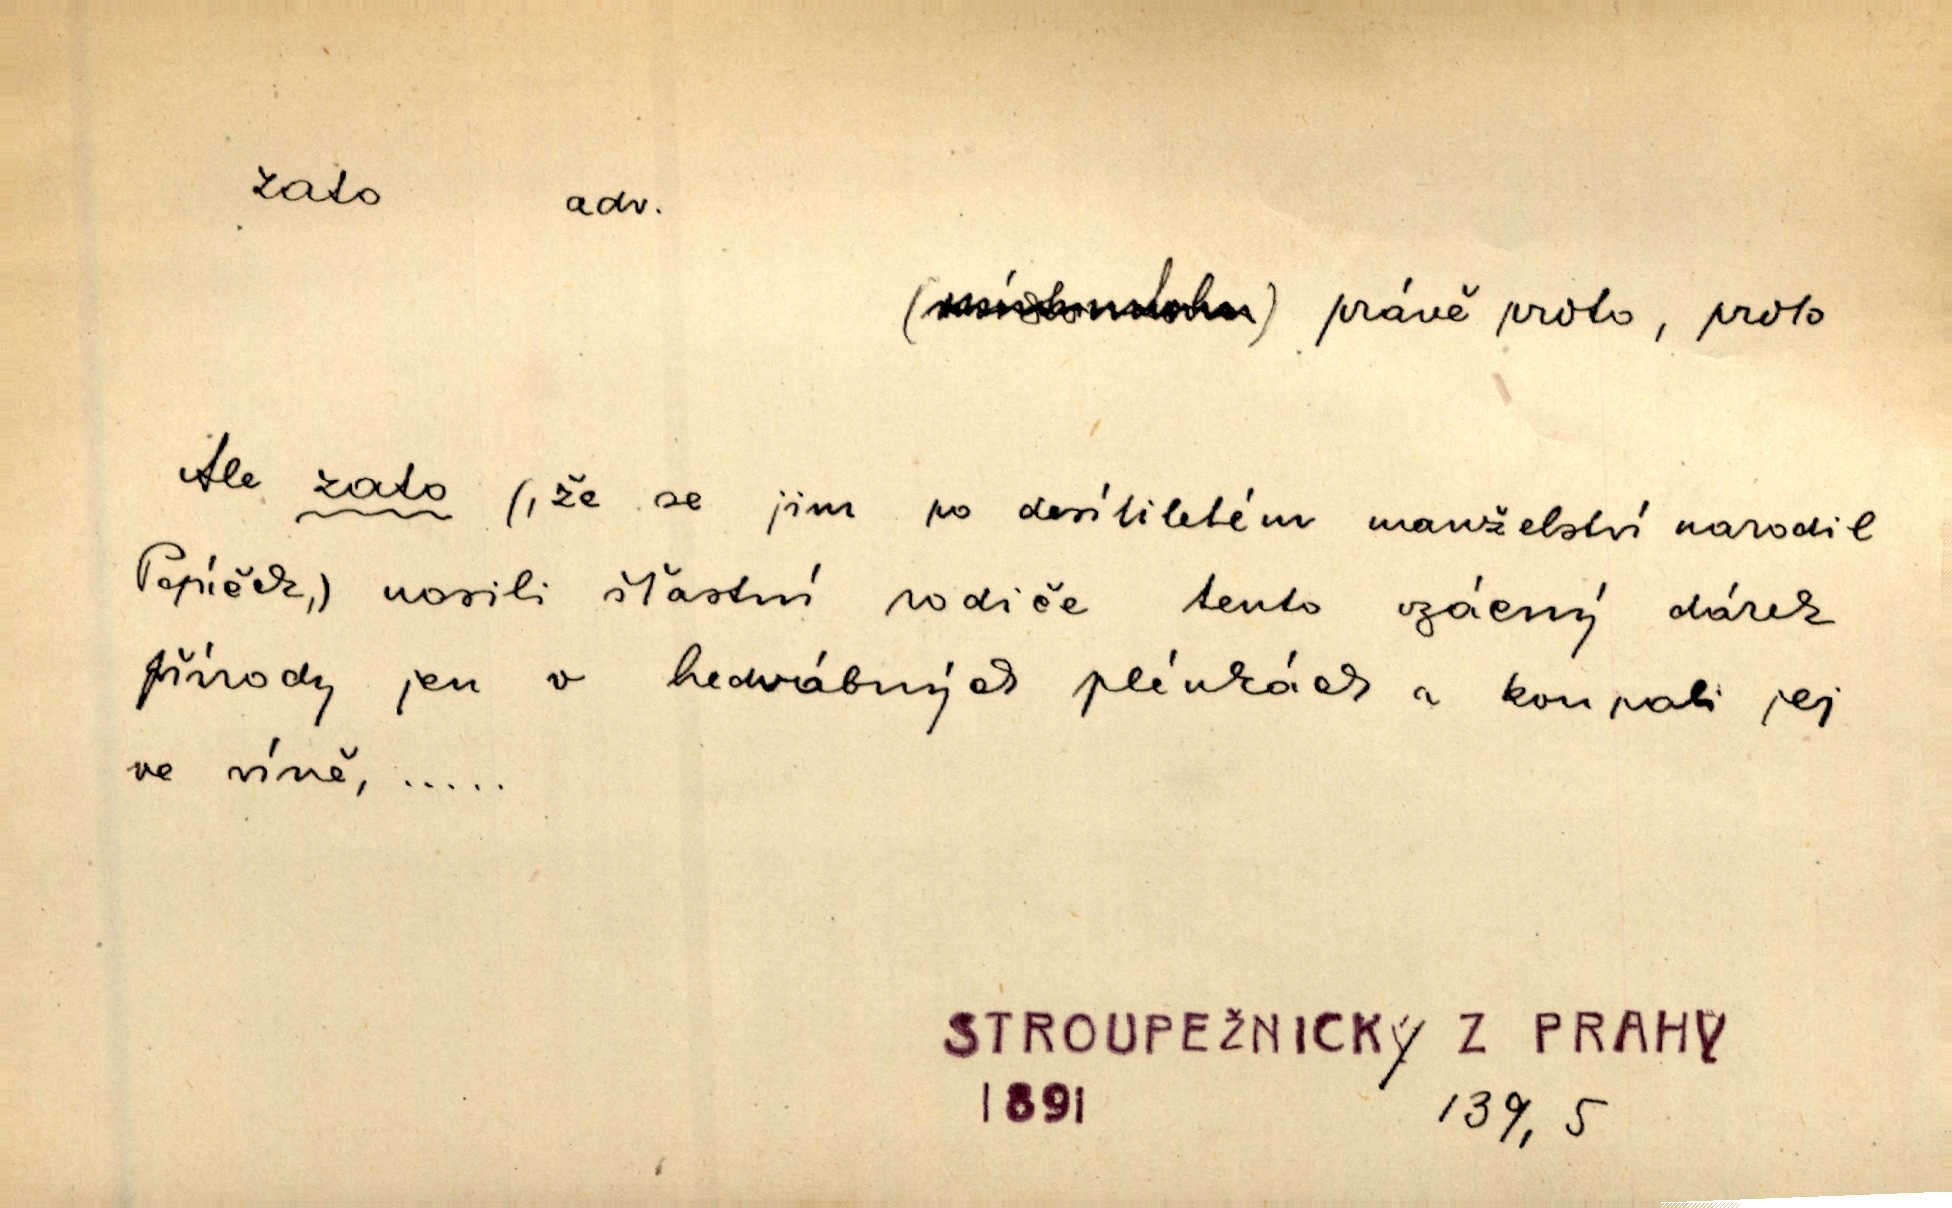 zato adv.
() právě proto, proto
Ale zato (, že se jim po desítiletém manželství narodil
Pepíček,) nosili šťastní rodiče tento vzácný dárek
přírody jen v hedvábných plénkách a koupali jej
ve víně, .....
STROUPEŽNICKÝ Z PRAHY
1891 139, 5